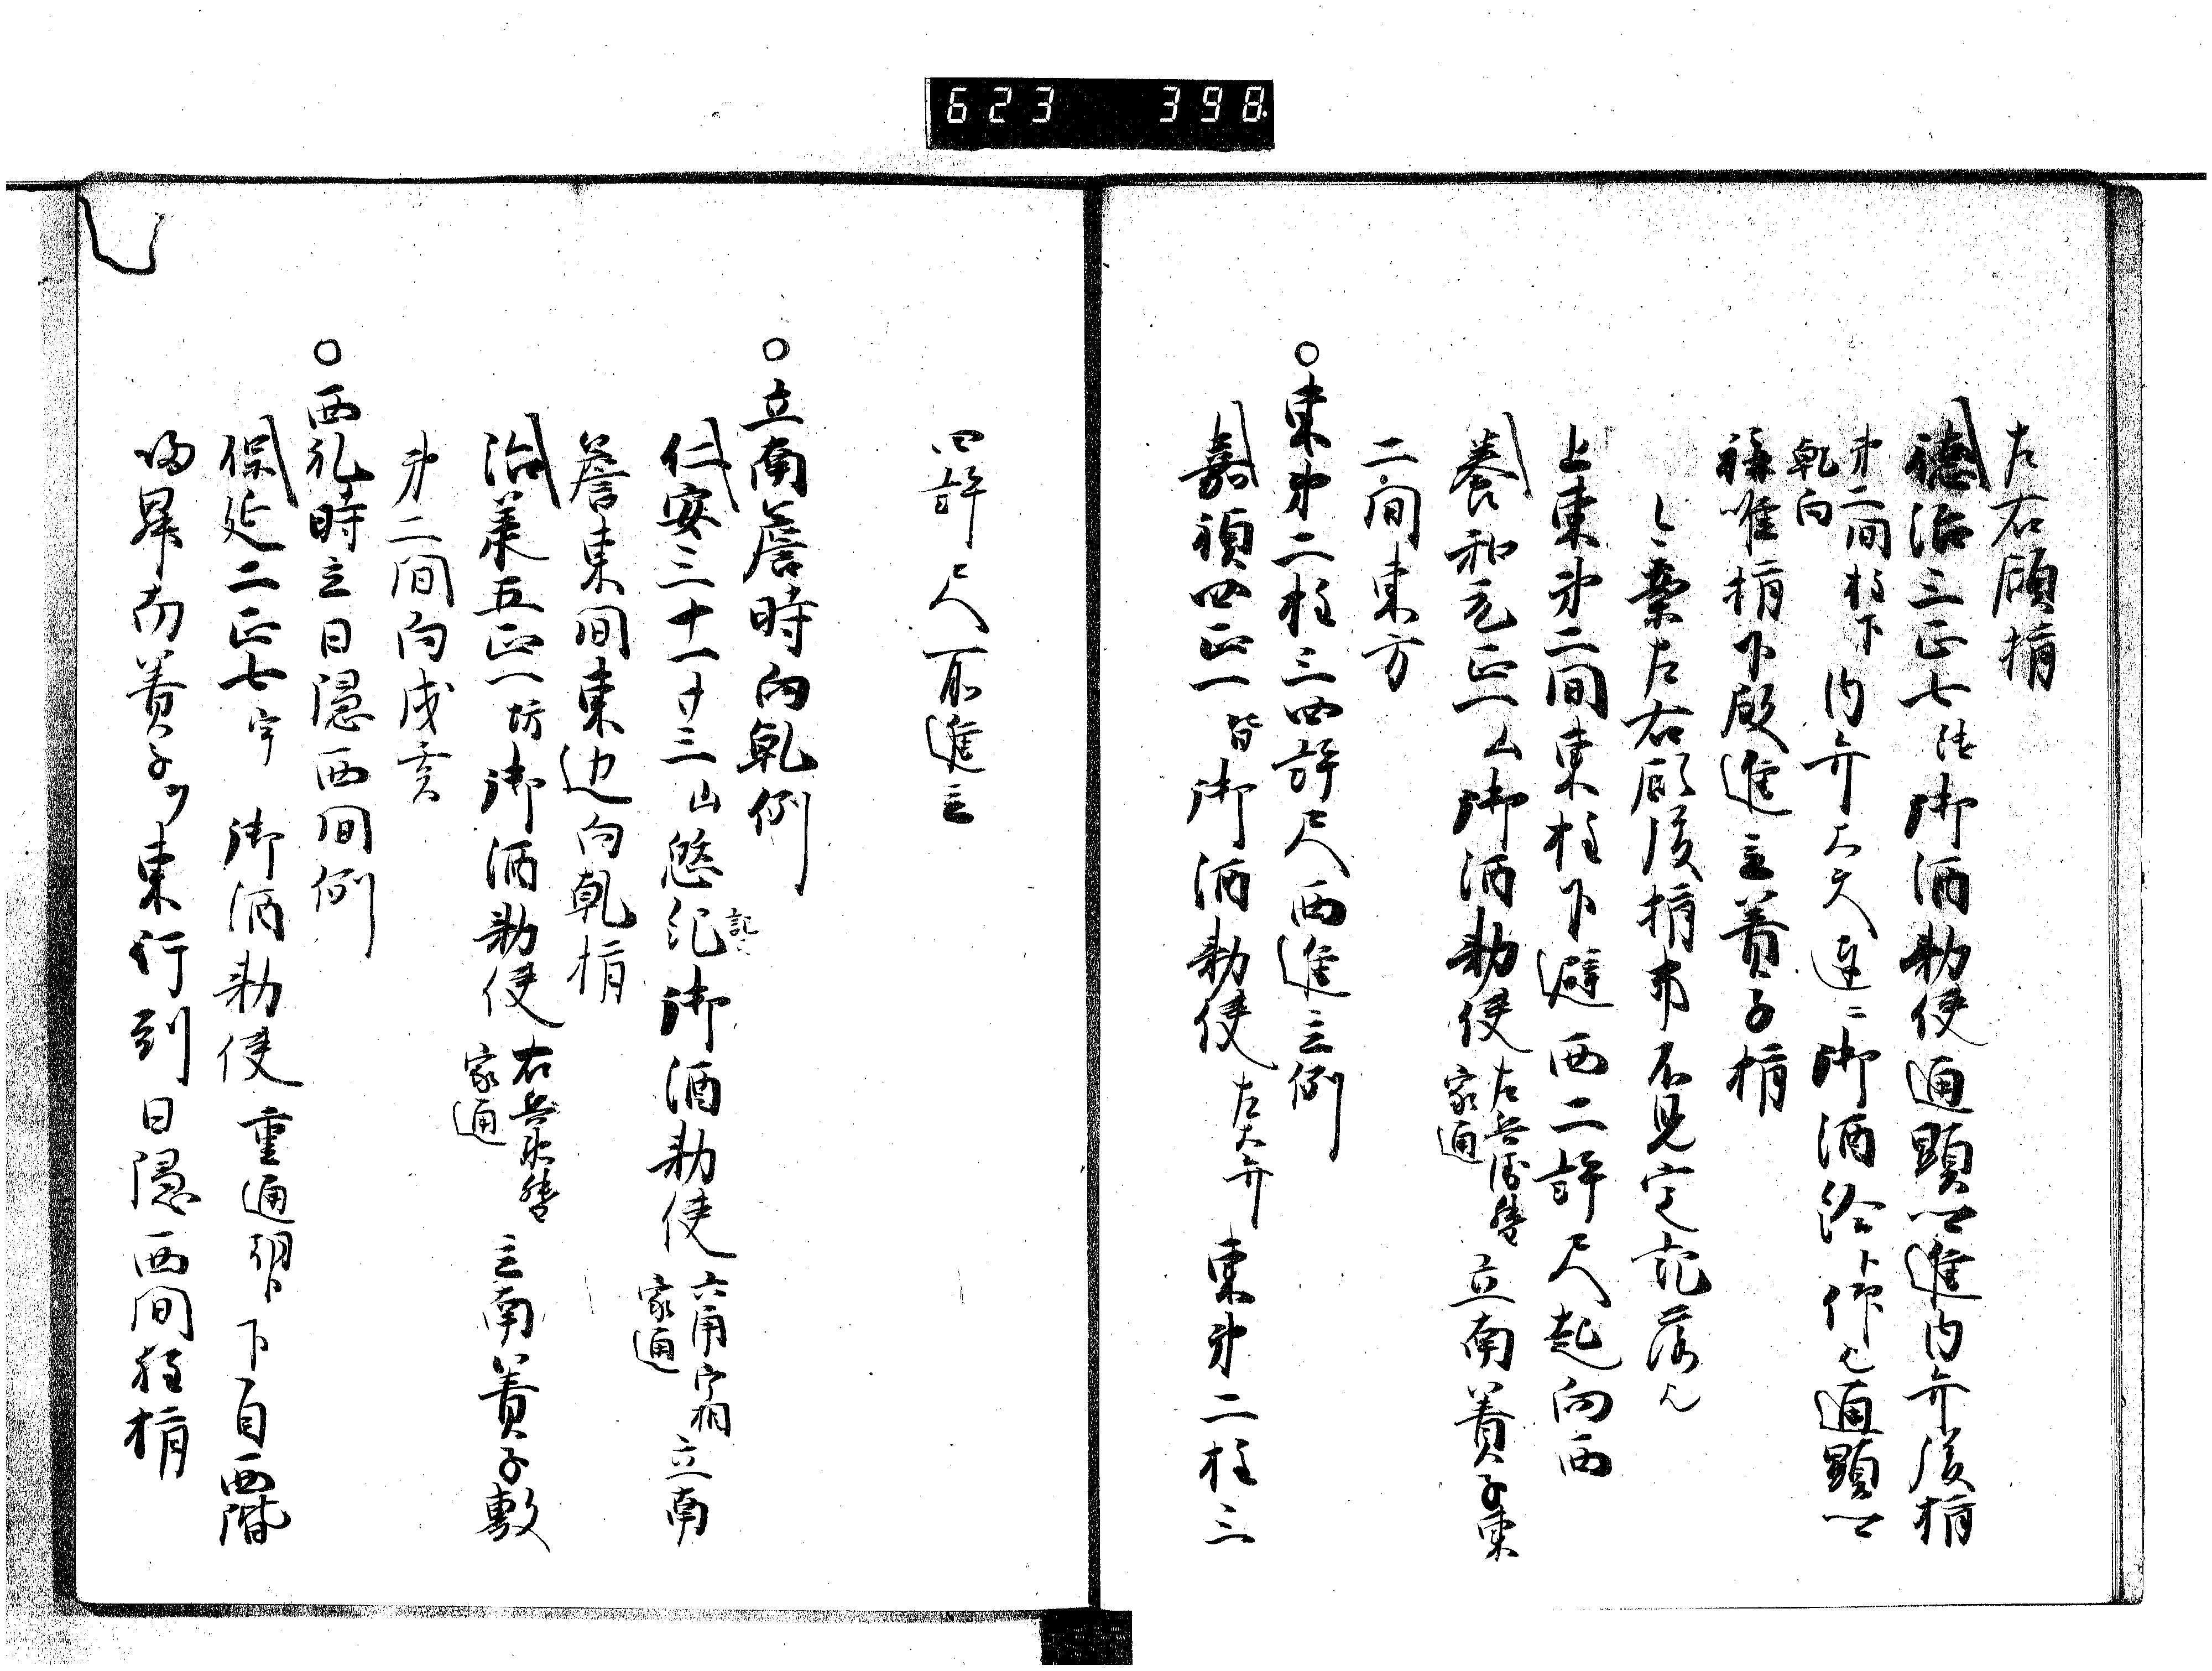 623 398
左右顧揖
徳治三正七 御酒勅使通顕卿進内弁後揖
第二間柱下内弁 御酒給 通顕卿
乾向
唯揖下殿進立簀子揖
今案左右顧後揖 不見定記落
上東第二間東柱下避西二許尺起向西
養和元正一山御酒勅使 左兵衛督 家通 立南簀子東
二間東方
○東第二柱三四許尺西進立例
嘉禎四正一 御酒勅使 左大弁 東第二柱三
四許尺西進立
○立南簷時向乾例
仁安三十一廿三山悠紀御酒勅使 六角宰相 家通 立南
簷東間東辺向乾揖
治承五正一 御酒勅使 右兵衛督 家通 立南簀子敷
第二間向戌亥
○西礼時立日隠西間例
保延二正七宇 御酒勅使 重通卿 下自西階
帰昇南簀子 東行到日隠西間 揖